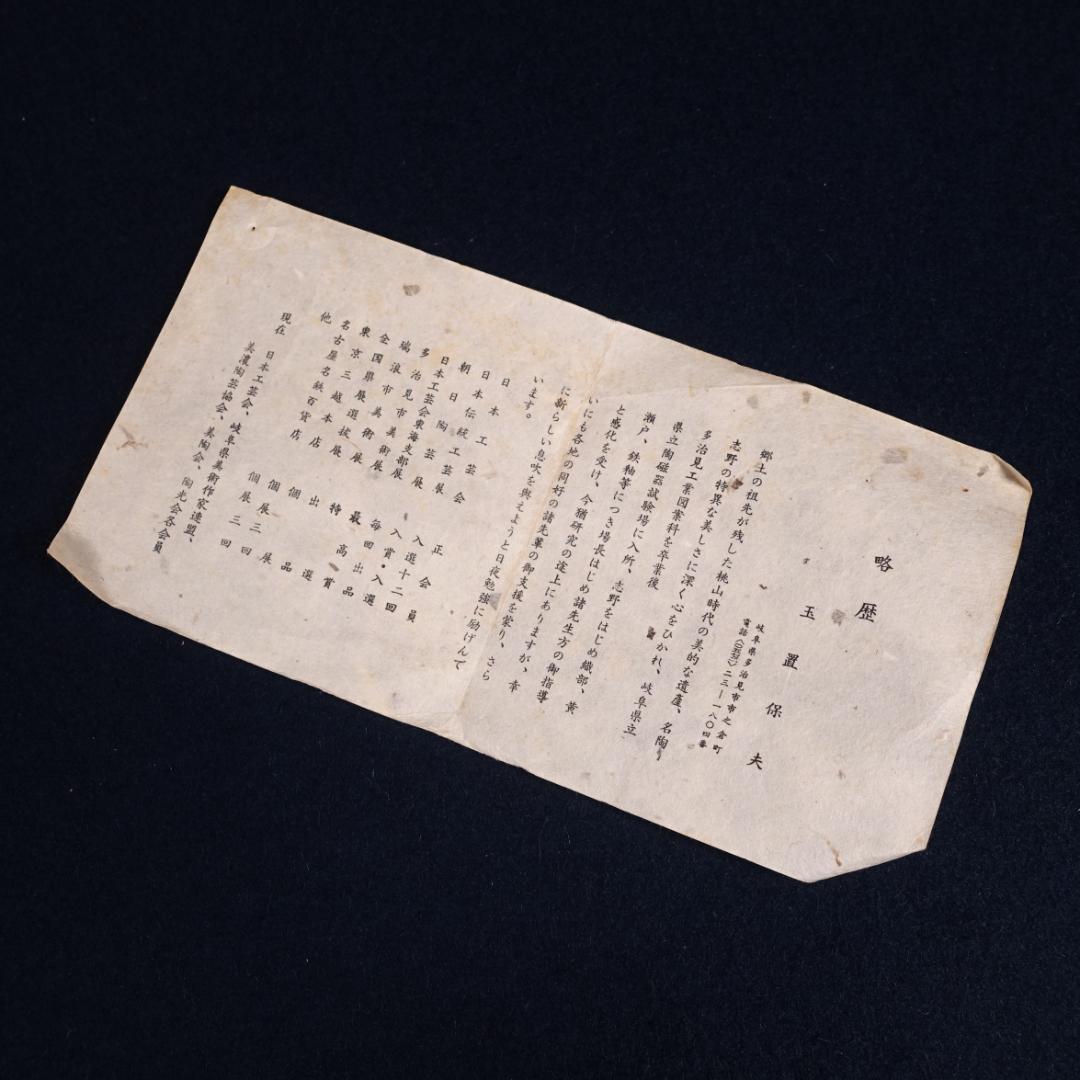 略歴
玉置保夫
岐阜県多治見市市之倉町
電話 二三―一八〇四番
郷土の祖先が残した桃山時代の美的な遺産、名陶
志野の特異な美しさに深く心をひかれ、岐阜県立
多治見工業図案科を卒業後
県立陶磁器試験場に入所、志野をはじめ織部、黄
瀬戸、鉄釉等につき場長はじめ諸先生方の御指導
と感化を受け、今猶研究の途上にありますが、幸
いにも各地の同好の諸先輩の御支援を蒙り、さら
に新らしい息吹を與えようと日夜勉強に励げんで
います。
日本工芸会 正会員
日本伝統工芸展 入選十二回
朝日陶芸展 入賞・入選
日本工芸会東海支部展 毎回出品
多治見市美術展 最高賞
瑞浪市美術展 特選
全国県展選抜展 出品
東京三越本店 個展
名古屋名鉄百貨店 個展三回
他 個展三回
現在 日本工芸会、岐阜県美術作家連盟、
美濃陶芸協会、美陶会、陶光会各会員